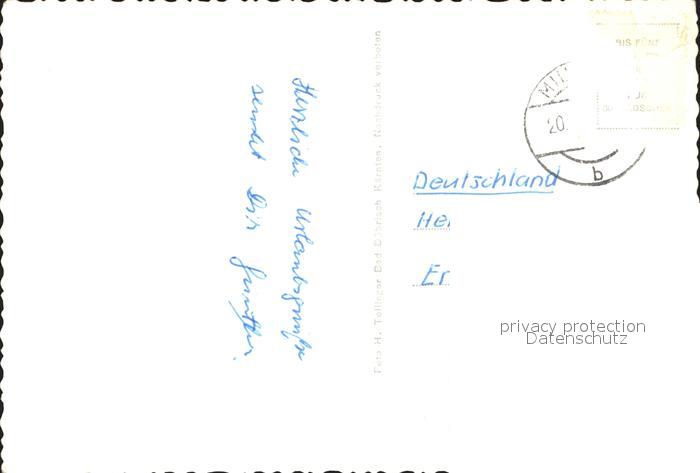 Herzliche Urlaubsgrüße
sendet Dir Günther.
Foto H. Tollinger Bad Döbriach Kärnten. Nachdruck verboten
BIS FÜNF
MIL
20.
b
Deutschland
He
Er
privacy protection
Datenschutz